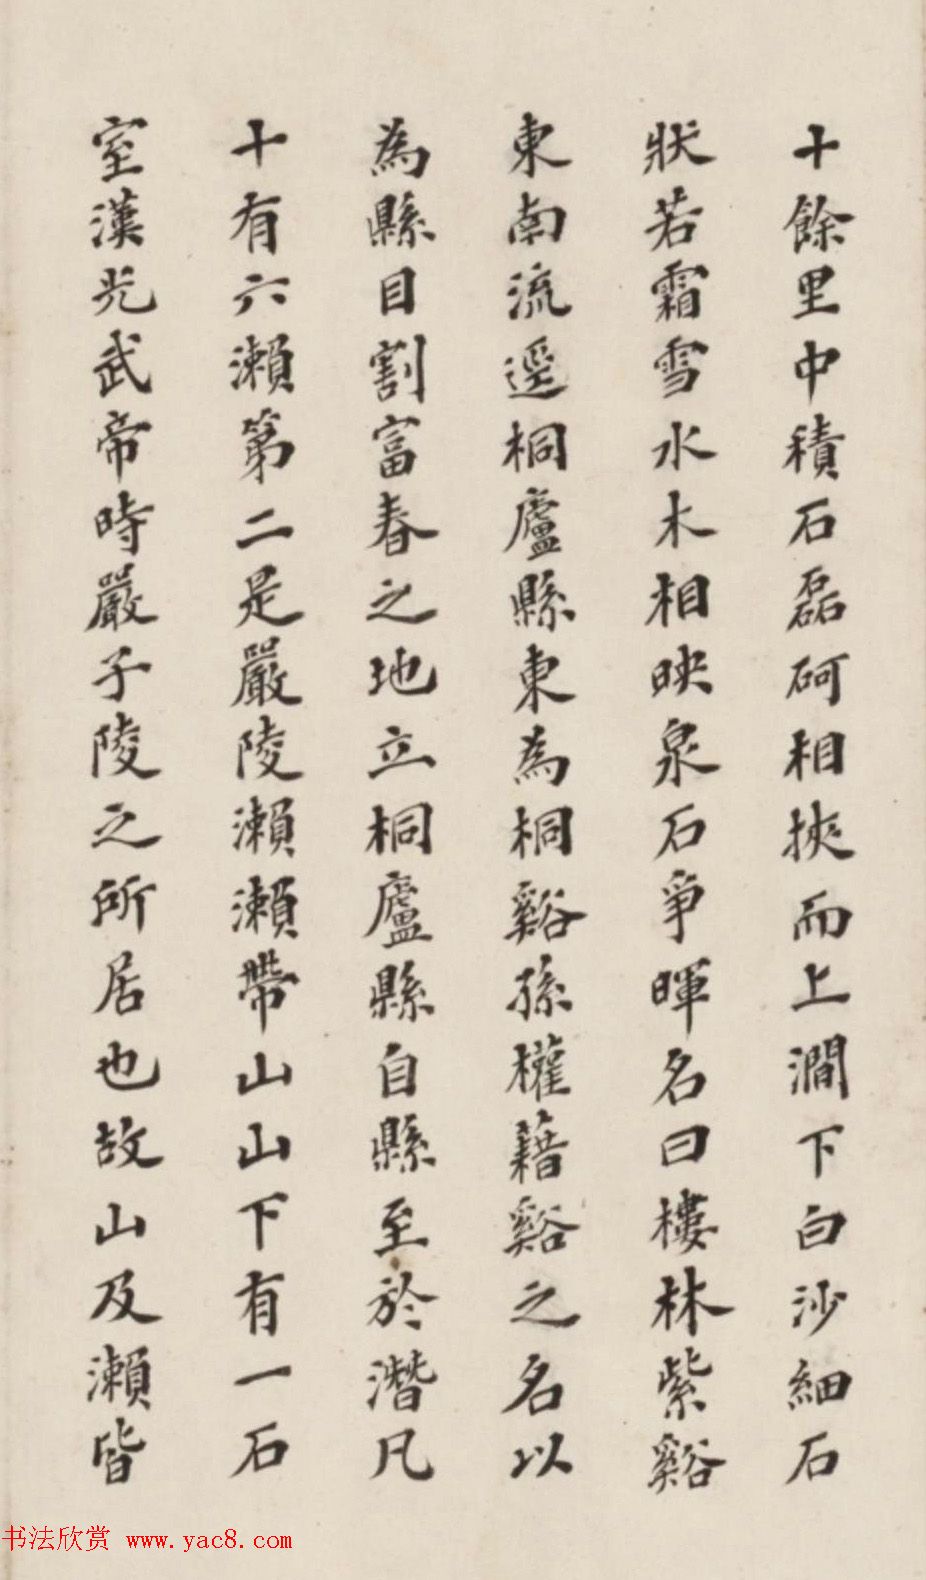 十餘里中積石磊砢相挾而上澗下白沙細石
狀若霜雪水木相映泉石爭暉名曰樓林紫谿
東南流逕桐廬縣東為桐谿孫權藉谿之名以
為縣目割富春之地立桐廬縣自縣至於潛凡
十有六瀨第二是嚴陵瀨瀨帶山山下有一石
室漢光武帝時嚴子陵之所居也故山及瀨皆
书法欣赏 www.yac8.com